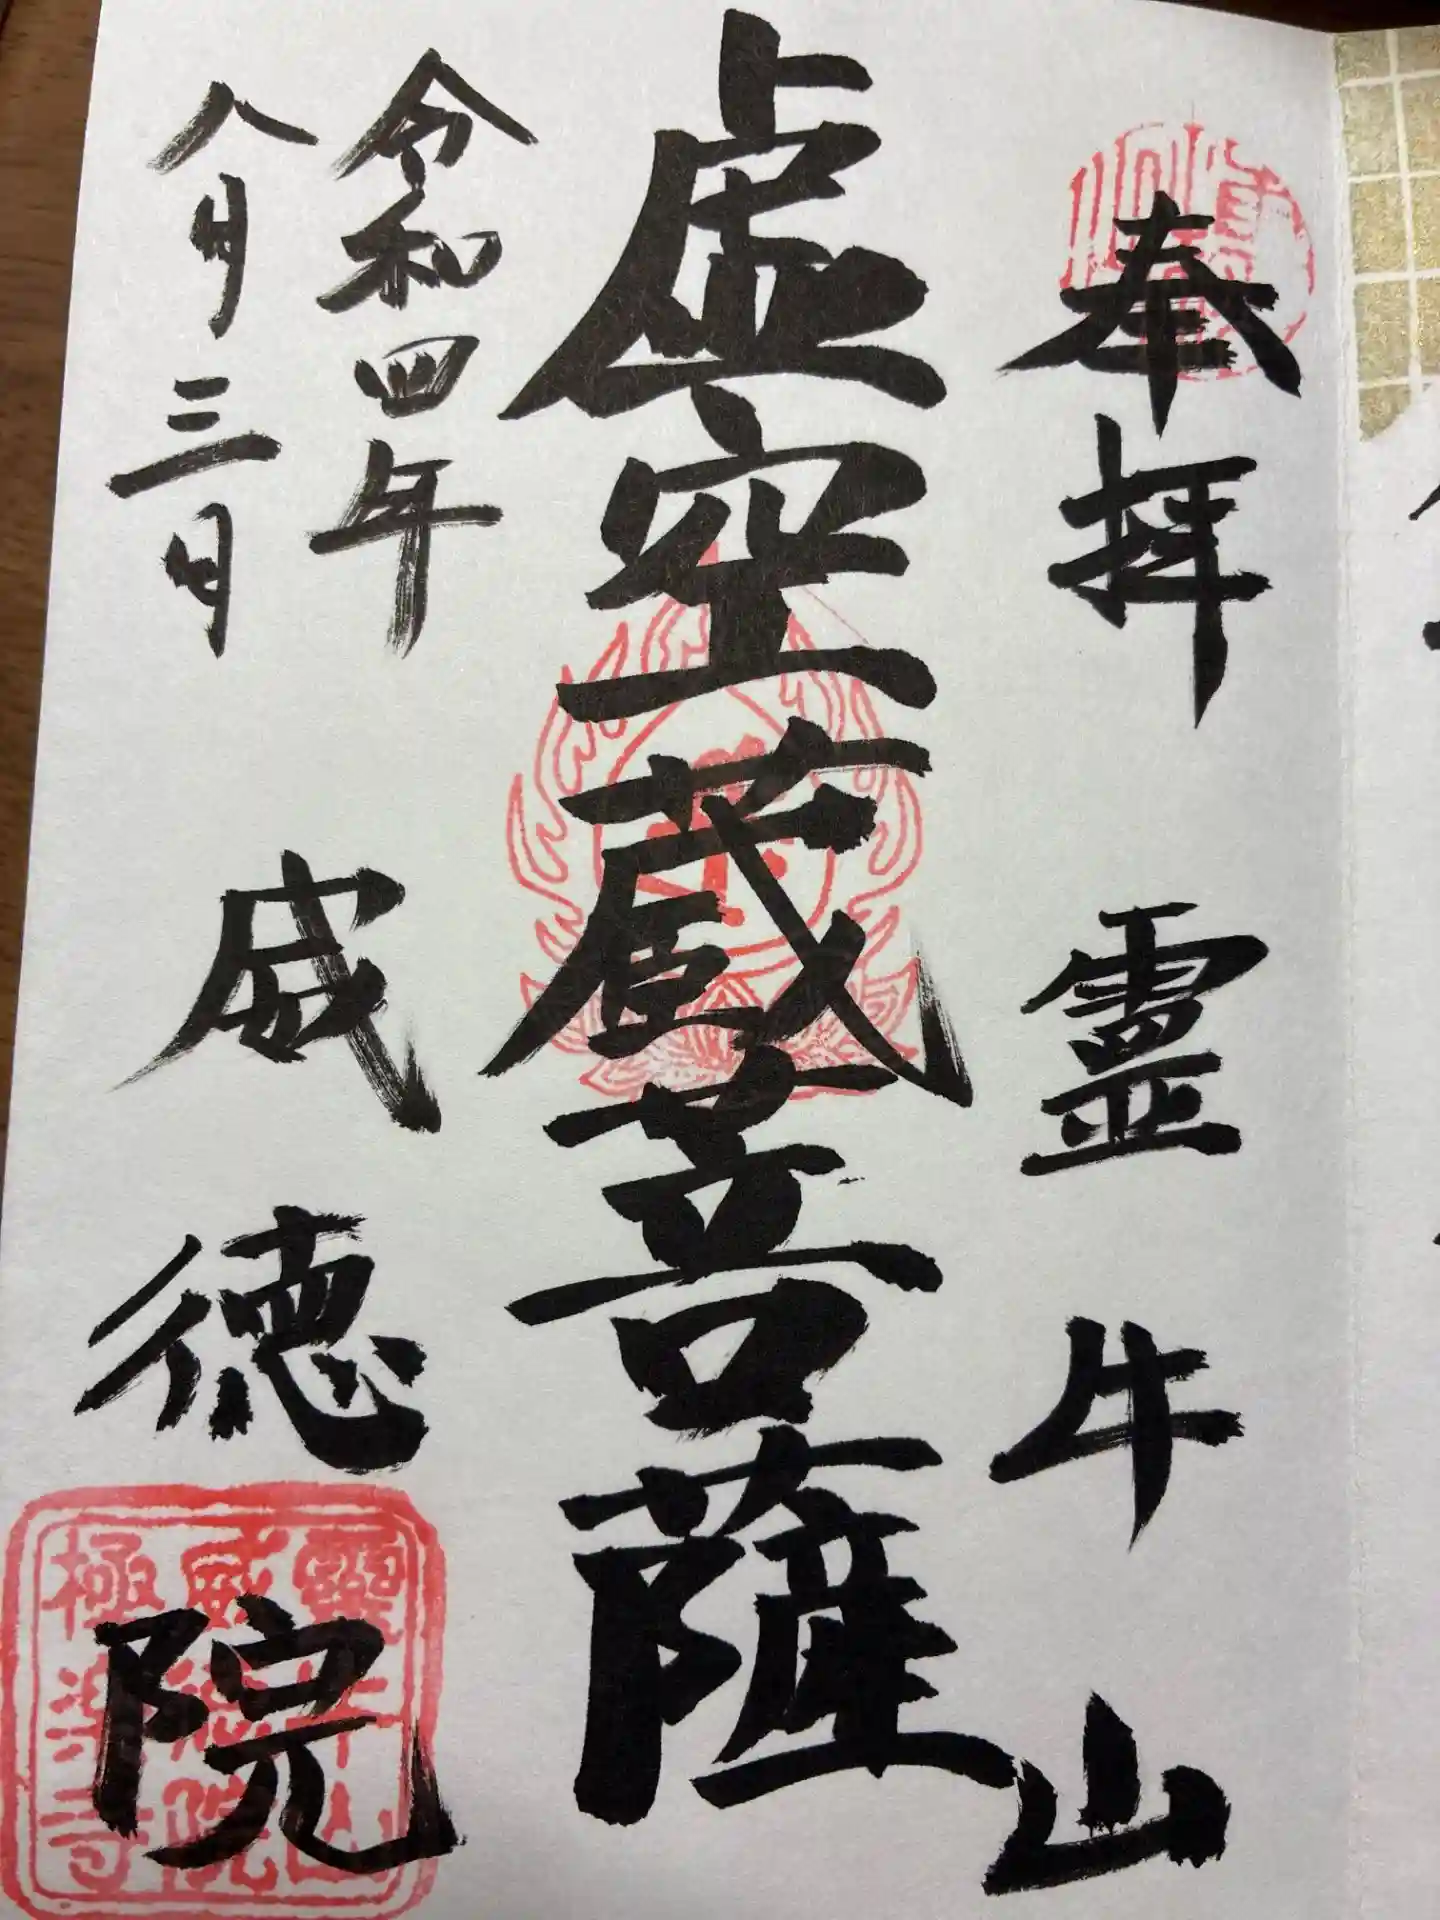 奉拝 霊牛山
虚空蔵菩薩
令和四年
八月三日
威徳院
霊牛山
威徳院
極楽寺